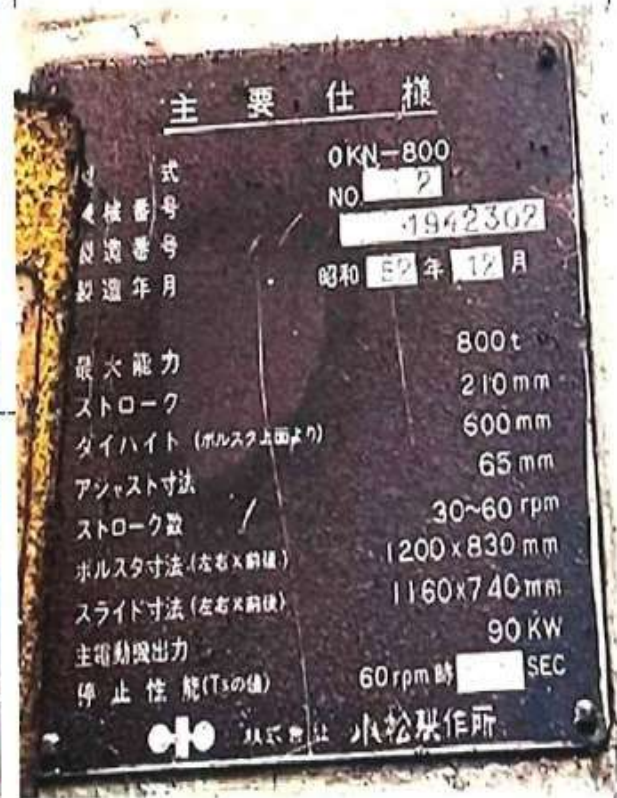 主要仕様
式 OKN-800
機械番号 NO. 2
製造番号 1942302
製造年月 昭和 52 年 12 月
最大能力 800t
ストローク 210mm
ダイハイト (ボルスタ上面より) 600mm
アジャスト寸法 65mm
ストローク数 30~60rpm
ボルスタ寸法 (左右×前後) 1200x830mm
スライド寸法 (左右×前後) 1160x740mm
主電動機出力 90KW
停止性能 (Tsの値) 60rpm時 SEC
株式会社 小松製作所